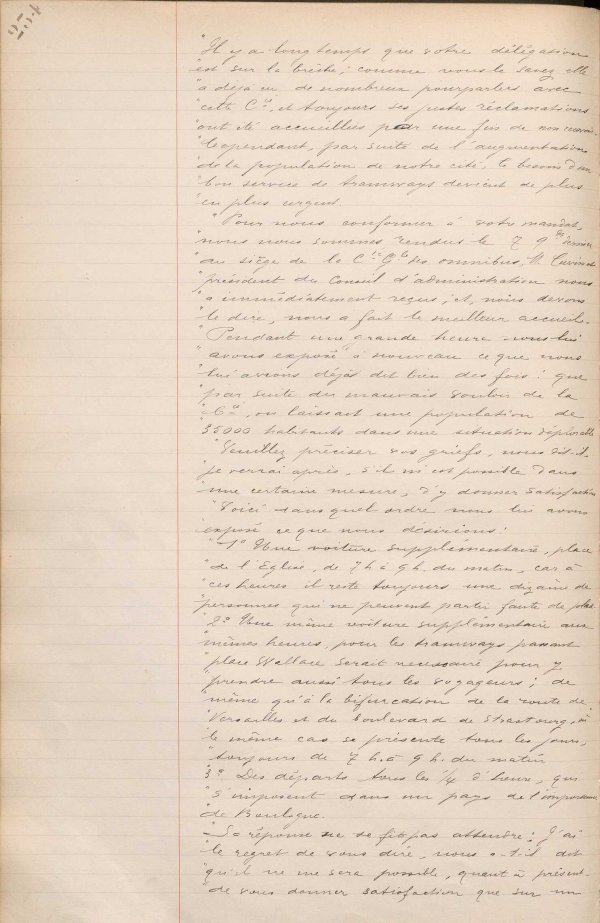 "Il y a longtemps que votre délégation
"est sur la brèche; comme vous le savez elle
"a déjà eu de nombreux pourparlers avec
"cette Cie, et toujours ses justes réclamations
"ont été accueillies par une fin de non recevoir.
"Cependant, par suite de l'augmentation
"de la population de notre cité, le besoin d'un
"bon service de tramways devient de plus
"en plus urgent.
"Pour nous conformer à votre mandat,
"nous nous sommes rendus le 7 9bre dernier
"au siège de la Cie Gle des omnibus, M. Cuvinot
"président du Conseil d'administration nous
"a immédiatement reçus; et, nous devons
"le dire, nous a fait le meilleur accueil.
"Pendant une grande heure nous lui
"avons exposé à nouveau ce que nous
"lui avions déjà dit bien des fois: que
"par suite du mauvais vouloir de la
"Cie, on laissait une population de
"35000 habitants dans une situation déplorable
"Veuillez préciser vos griefs, nous dit-il,
"je verrai après, s'il m'est possible dans
"une certaine mesure, d'y donner satisfaction
"Voici dans quel ordre nous lui avons
"exposé ce que nous désirions:
"1° Une voiture supplémentaire, place
"de l'Eglise, de 7 h à 9 h. du matin, car à
"ces heures il reste toujours une dizaine de
"personnes qui ne peuvent partir faute de place
"2° Une même voiture supplémentaire aux
"mêmes heures, pour les tramways passant
"place Wallace serait nécessaire pour y
"prendre aussi tous les voyageurs; de
"même qu'à la bifurcation de la route de
"Versailles et du boulevard de Strasbourg, où
"le même cas se présente tous les jours,
"toujours de 7 h. à 9 h. du matin
"3° Des départs tous les 1/4 d'heure, qui
"s'imposent dans un pays de l'importance
"de Boulogne.
"Sa réponse ne se fit pas attendre: J'ai
"le regret de vous dire, nous a-t-il dit
"qu'il ne me sera possible, quant à présent
"de vous donner satisfaction que sur un